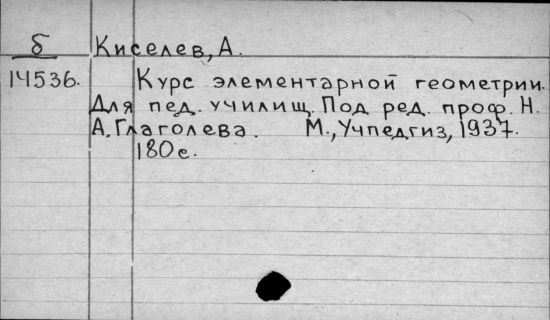 б Киселев, А.
14536. Курс элементарной геометрии.
Для пед. училищ. Под ред. проф. Н.
А. Глаголева. М., Учпедгиз, 1937.
180 с.